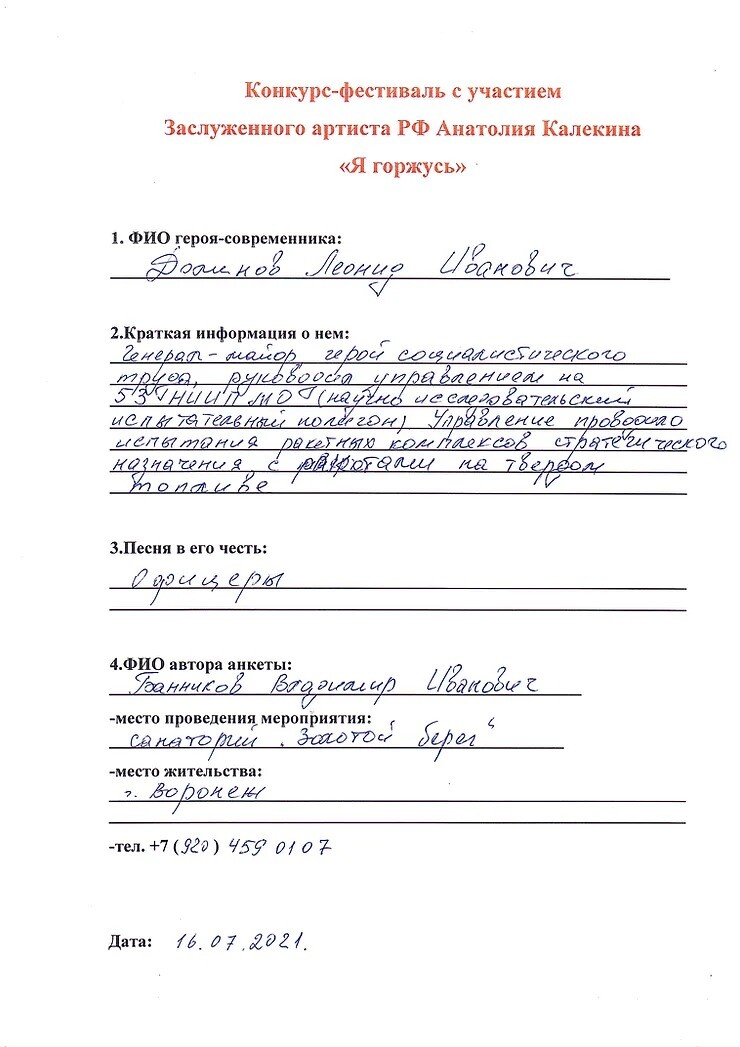 Конкурс-фестиваль с участием
Заслуженного артиста РФ Анатолия Калекина
«Я горжусь»
1. ФИО героя-современника:
Леонид Иванович
2.Краткая информация о нем:
Генерал-майор герой социалистического
труда, руководил управлением на
53 НИИП МО (научно исследовательский
испытательный полигон) Управление проводило
испытания ракетных комплексов стратегического
назначения, с на твердом
топливе
3.Песня в его честь:
Офицеры
4.ФИО автора анкеты:
Банников Владимир Иванович
-место проведения мероприятия:
санаторий „Золотой берег“
-место жительства:
г. Воронеж
-тел. +7 (920) 459 0107
Дата: 16.07.2021.